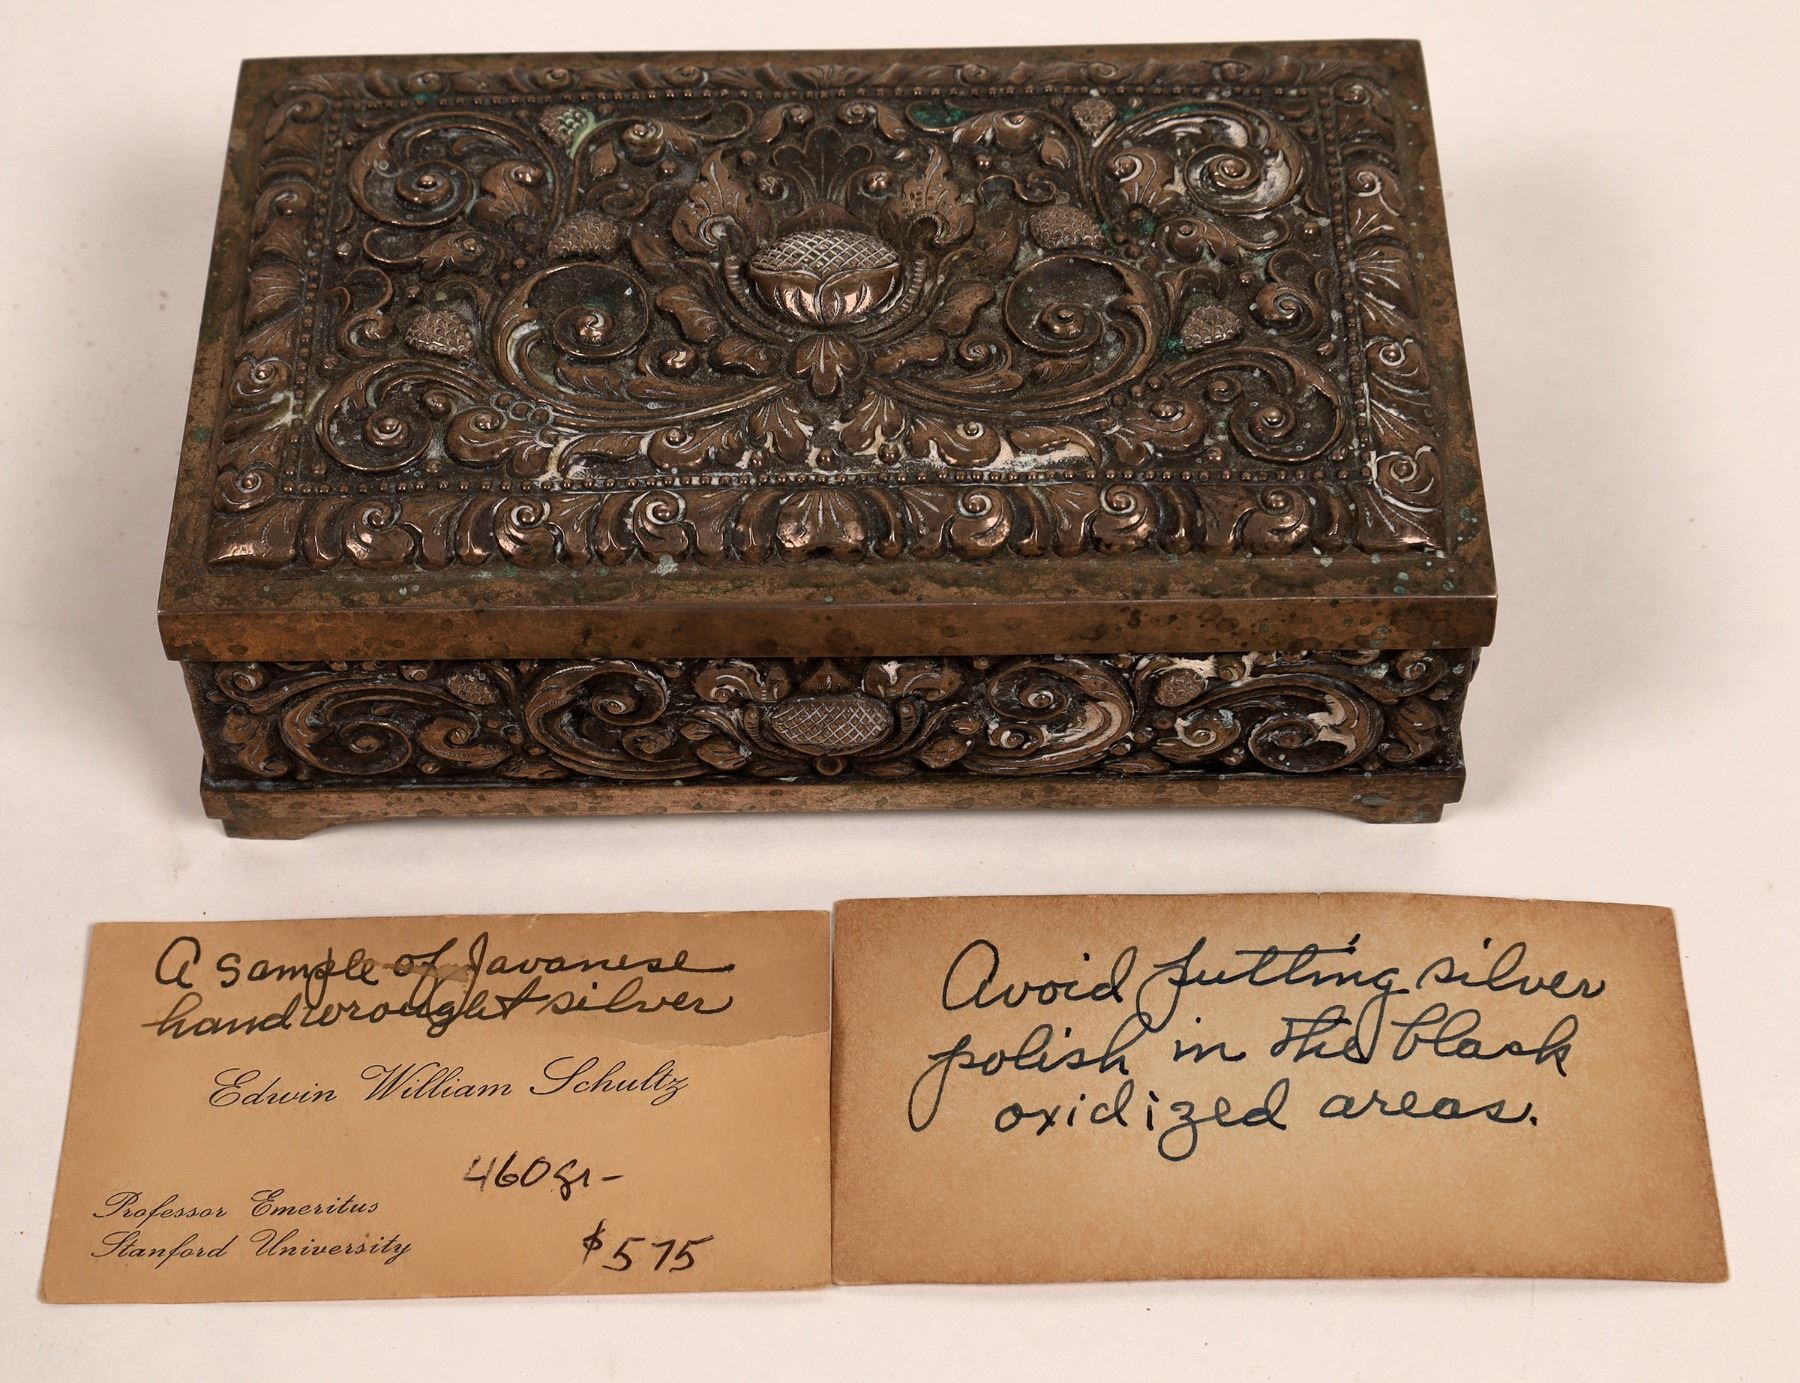 A sample of Javanese
handwrought silver
Edwin William Schultz
460gr-
Professor Emeritus
Stanford University
$575
Avoid putting silver
polish in the black
oxidized areas.